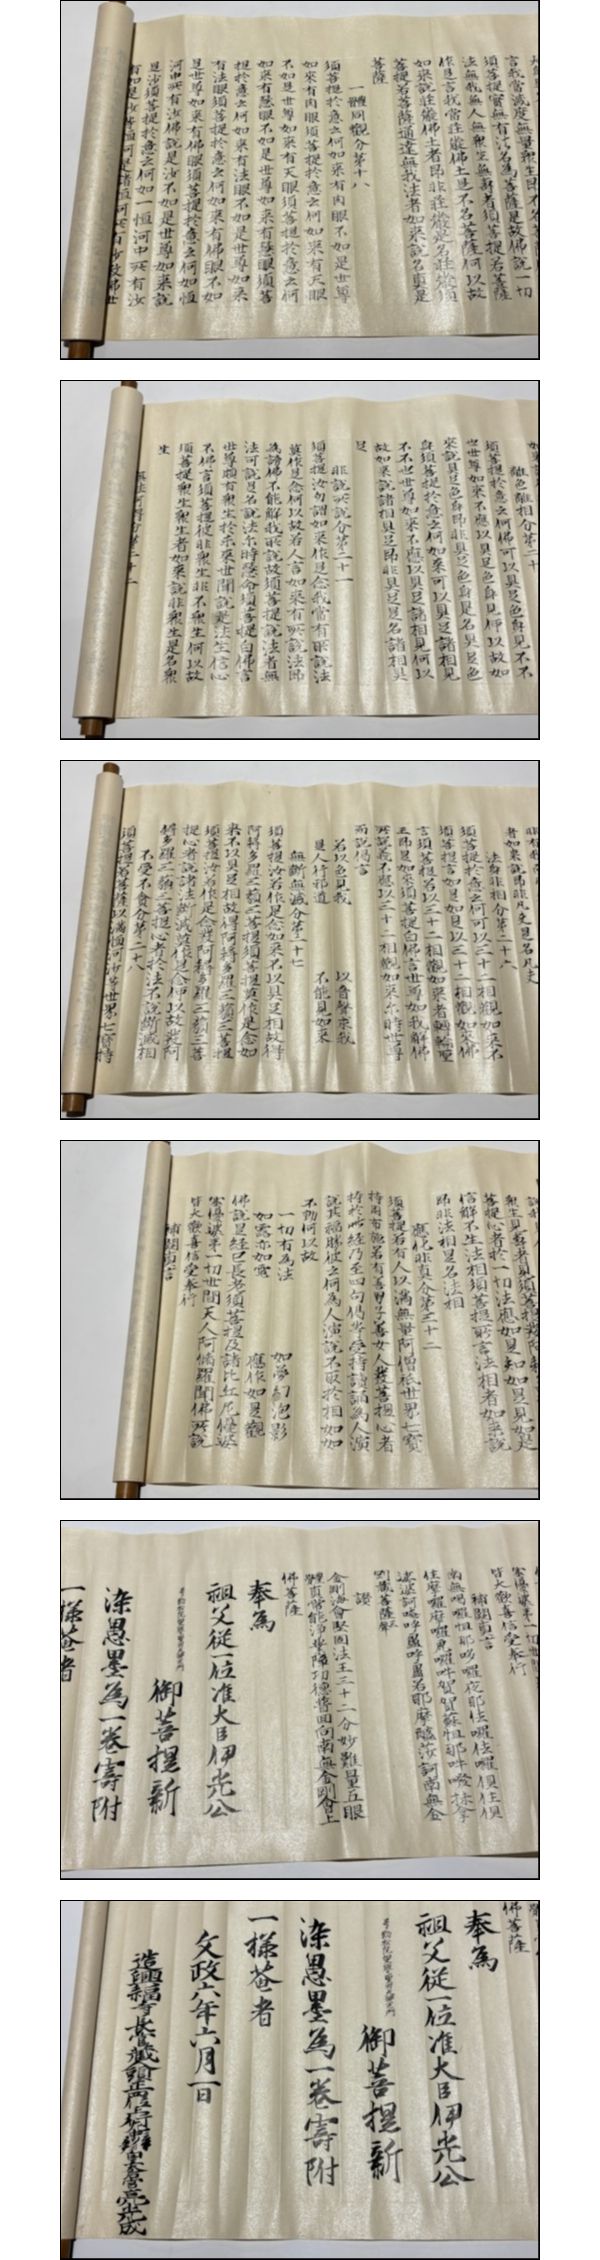 言我當滅度無量衆生即不名菩薩
須菩提實無有法名為菩薩是故佛說一切
法無我無人無衆生無壽者須菩提若菩薩
作是言我當莊嚴佛土是不名菩薩何以故
如來說莊嚴佛土者即非莊嚴是名莊嚴須
菩提若菩薩通達無我法者如來說名真是
菩薩
一體同觀分第十八
須菩提於意云何如來有肉眼不如是世尊
如來有肉眼須菩提於意云何如來有天眼
不如是世尊如來有天眼須菩提於意云何
如來有慧眼不如是世尊如來有慧眼須菩
提於意云何如來有法眼不如是世尊如來
有法眼須菩提於意云何如來有佛眼不如
是世尊如來有佛眼須菩提於意云何如恒
河中所有沙佛說是沙不如是世尊如來說
是沙須菩提於意云何如一恒河中所有沙
離色離相分第二十
須菩提於意云何佛可以具足色身見不不
也世尊如來不應以具足色身見何以故如
來說具足色身即非具足色身是名具足色
身須菩提於意云何如來可以具足諸相見
不不也世尊如來不應以具足諸相見何以
故如來說諸相具足即非具足是名諸相具
足
非說所說分第二十一
須菩提汝勿謂如來作是念我當有所說法
莫作是念何以故若人言如來有所說法即
為謗佛不能解我所說故須菩提說法者無
法可說是名說法尒時慧命須菩提白佛言
世尊頗有衆生於未來世聞說是法生信心
不佛言須菩提彼非衆生非不衆生何以故
須菩提衆生衆生者如來說非衆生是名衆
生
無法可得分第二十二
者如來說即非凡夫是名凡夫
法身非相分第二十六
須菩提於意云何可以三十二相觀如來不
須菩提言如是如是以三十二相觀如來佛
言須菩提若以三十二相觀如來者轉輪聖
王即是如來須菩提白佛言世尊如我解佛
所說義不應以三十二相觀如來尒時世尊
而說偈言
若以色見我　以音聲求我
是人行邪道　不能見如來
無斷無滅分第二十七
須菩提汝若作是念如來不以具足相故得
阿耨多羅三藐三菩提須菩提莫作是念如
來不以具足相故得阿耨多羅三藐三菩提
須菩提汝若作是念發阿耨多羅三藐三菩
提心者說諸法斷滅莫作是念何以故發阿
耨多羅三藐三菩提心者於法不說斷滅相
不受不貪分第二十八
須菩提若菩薩以滿恒河沙等世界七寶持
菩提心者於一切法應如是知如是見如是
信解不生法相須菩提所言法相者如來說
即非法相是名法相
應化非真分第三十二
須菩提若有人以滿無量阿僧祇世界七寶
持用布施若有善男子善女人發菩提心者
持於此經乃至四句偈等受持讀誦為人演
說其福勝彼云何為人演說不取於相如如
不動何以故
一切有為法　如夢幻泡影
如露亦如電　應作如是觀
佛說是經已長老須菩提及諸比丘尼優婆
塞優婆夷一切世間天人阿脩羅聞佛所說
皆大歡喜信受奉行
補闕真言
皆大歡喜信受奉行
補闕真言
讃
金剛海會堅固法王三十二分妙難量五眼
佛菩薩
奉為
祖父從一位准大臣伊光公
御菩提新
染愚墨為一卷寄附
一様菴者
佛菩薩
奉為
祖父從一位准大臣伊光公
御菩提新
染愚墨為一卷寄附
一様菴者
文政六年六月一日